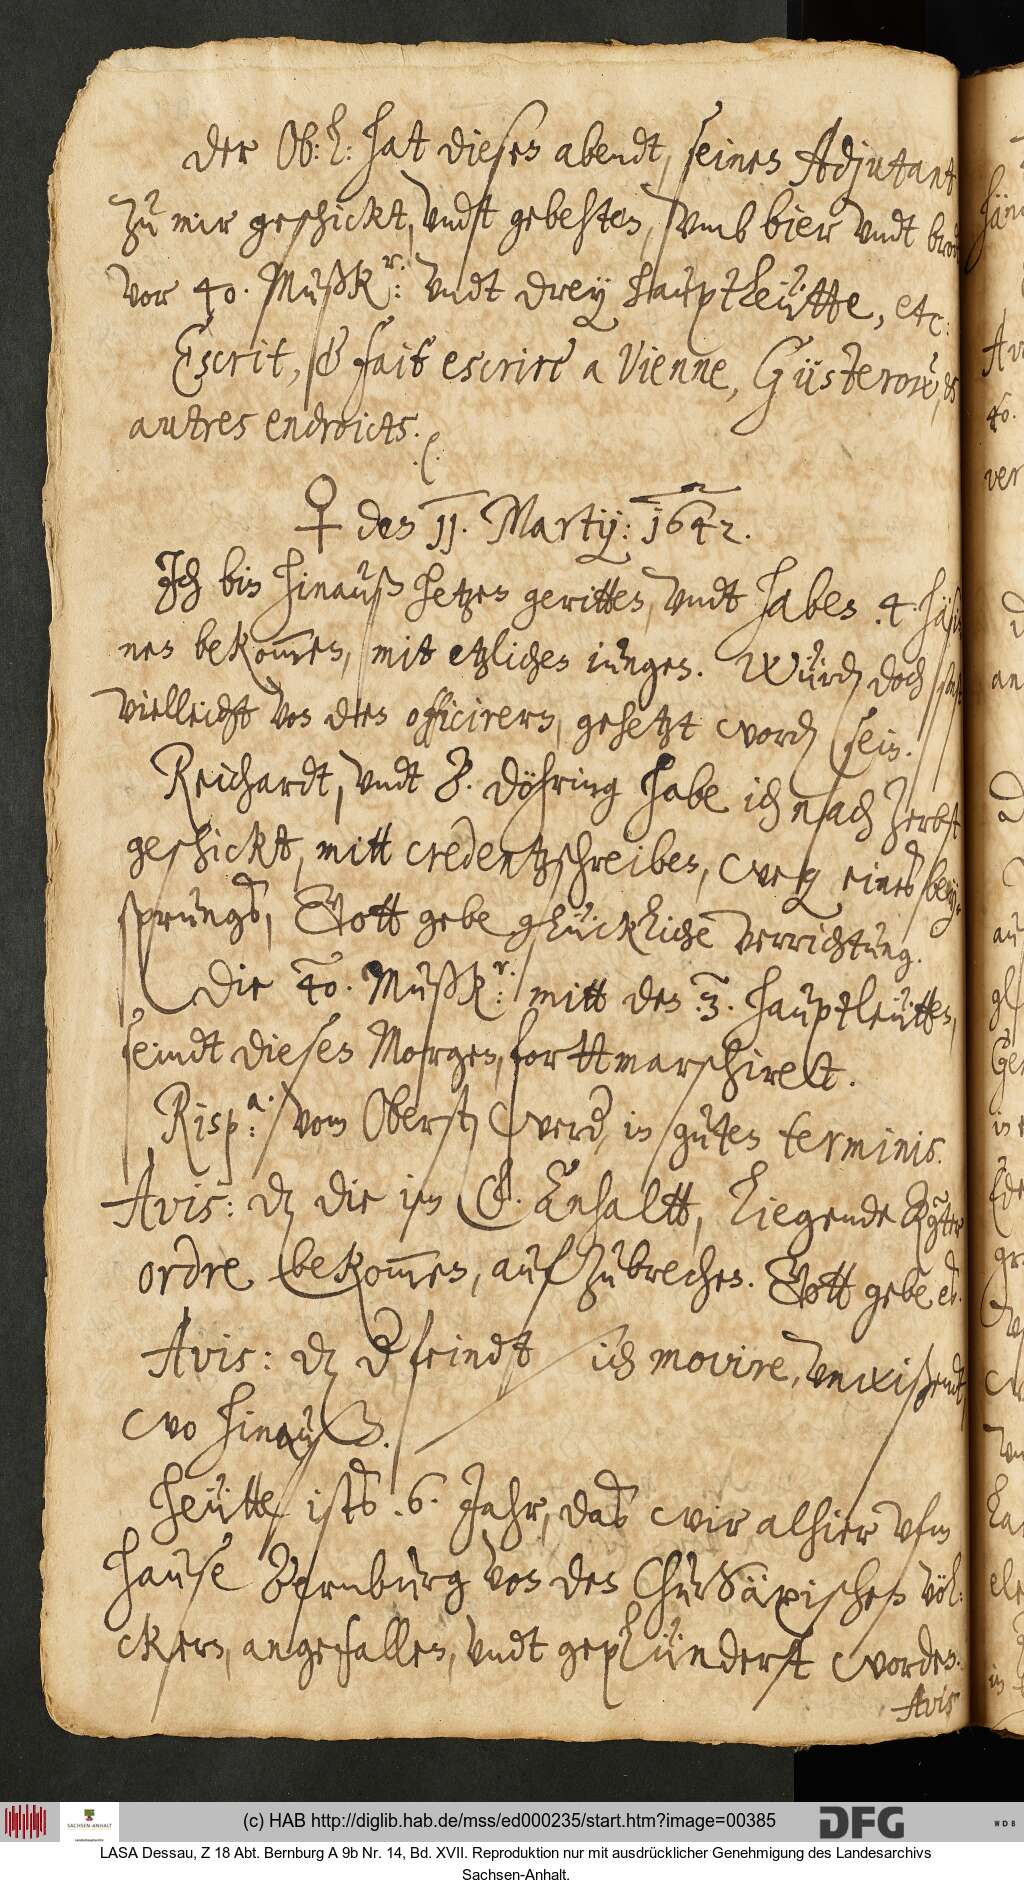 der Ob: L: hat diesen abendt, seinen Adjutant
zu mir geschickt, vndt gebehten, vmb bier vndt brodt
vor 40. Mußk.r: vndt drey hauptleütte, etc:
Escrit, & fait escrire a Vienne, Güsterow, &
autres endroicts.
♀ den 11. Martij: 1642.
Ich bin hinauß hetzen geritten, vndt haben .4. häsi-
nen bekom̅en, mit etzlichen iungen. Würden doch
vielleicht von den officirern, gehetzt worden sein.
Reichardt, vndt D. Döhring habe ich nach Zerbst
geschickt, mitt credentzschreiben, weg eines bey-
sprungs, Gott gebe glückliche verrichtung.
Die 40. Mußk.r: mitt den .3. hauptleütten,
seindt dieses Morgen, forttmarschirett.
Risp.a: vom Obersten Werder, in guten terminis.
Avis: dz die im F. Anhaltt, liegende Reüter
ordre bekom̅en, aufzubrechen. Gott gebe es.
Avis: dz der feindt sich movire, vnwißendt,
wo hinauß.
Heütte ists .6. Jahr, das wir alhier vfm
hause Bernburg von den ChurSäxischen völ:
ckern, angefallen, vndt geplündert worden.
Avis
(c) HAB http://diglib.hab.de/mss/ed000235/start.htm?image=00385
SACHSEN-ANHALT
DFG
WDB
LASA Dessau, Z 18 Abt. Bernburg A 9b Nr. 14, Bd. XVII. Reproduktion nur mit ausdrücklicher Genehmigung des Landesarchivs
Sachsen-Anhalt.